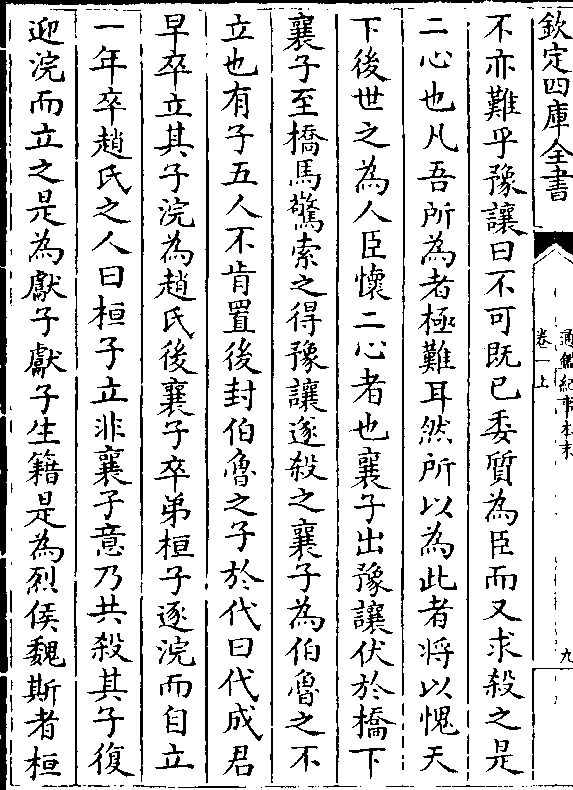 欽定四庫全書
通鑑紀事本末
卷一上
九
不亦難乎豫讓曰不可既已委質為臣而又求殺之是
二心也凡吾所為者極難耳然所以為此者将以愧天
下後世之為人臣懷二心者也襄子出豫讓伏於橋下
襄子至橋馬驚索之得豫讓遂殺之襄子為伯魯之不
立也有子五人不肯置後封伯魯之子於代曰代成君
早卒立其子浣為趙氏後襄子卒弟桓子逐浣而自立
一年卒趙氏之人曰桓子立非襄子意乃共殺其子復
迎浣而立之是為獻子獻子生籍是為烈侯魏斯者桓